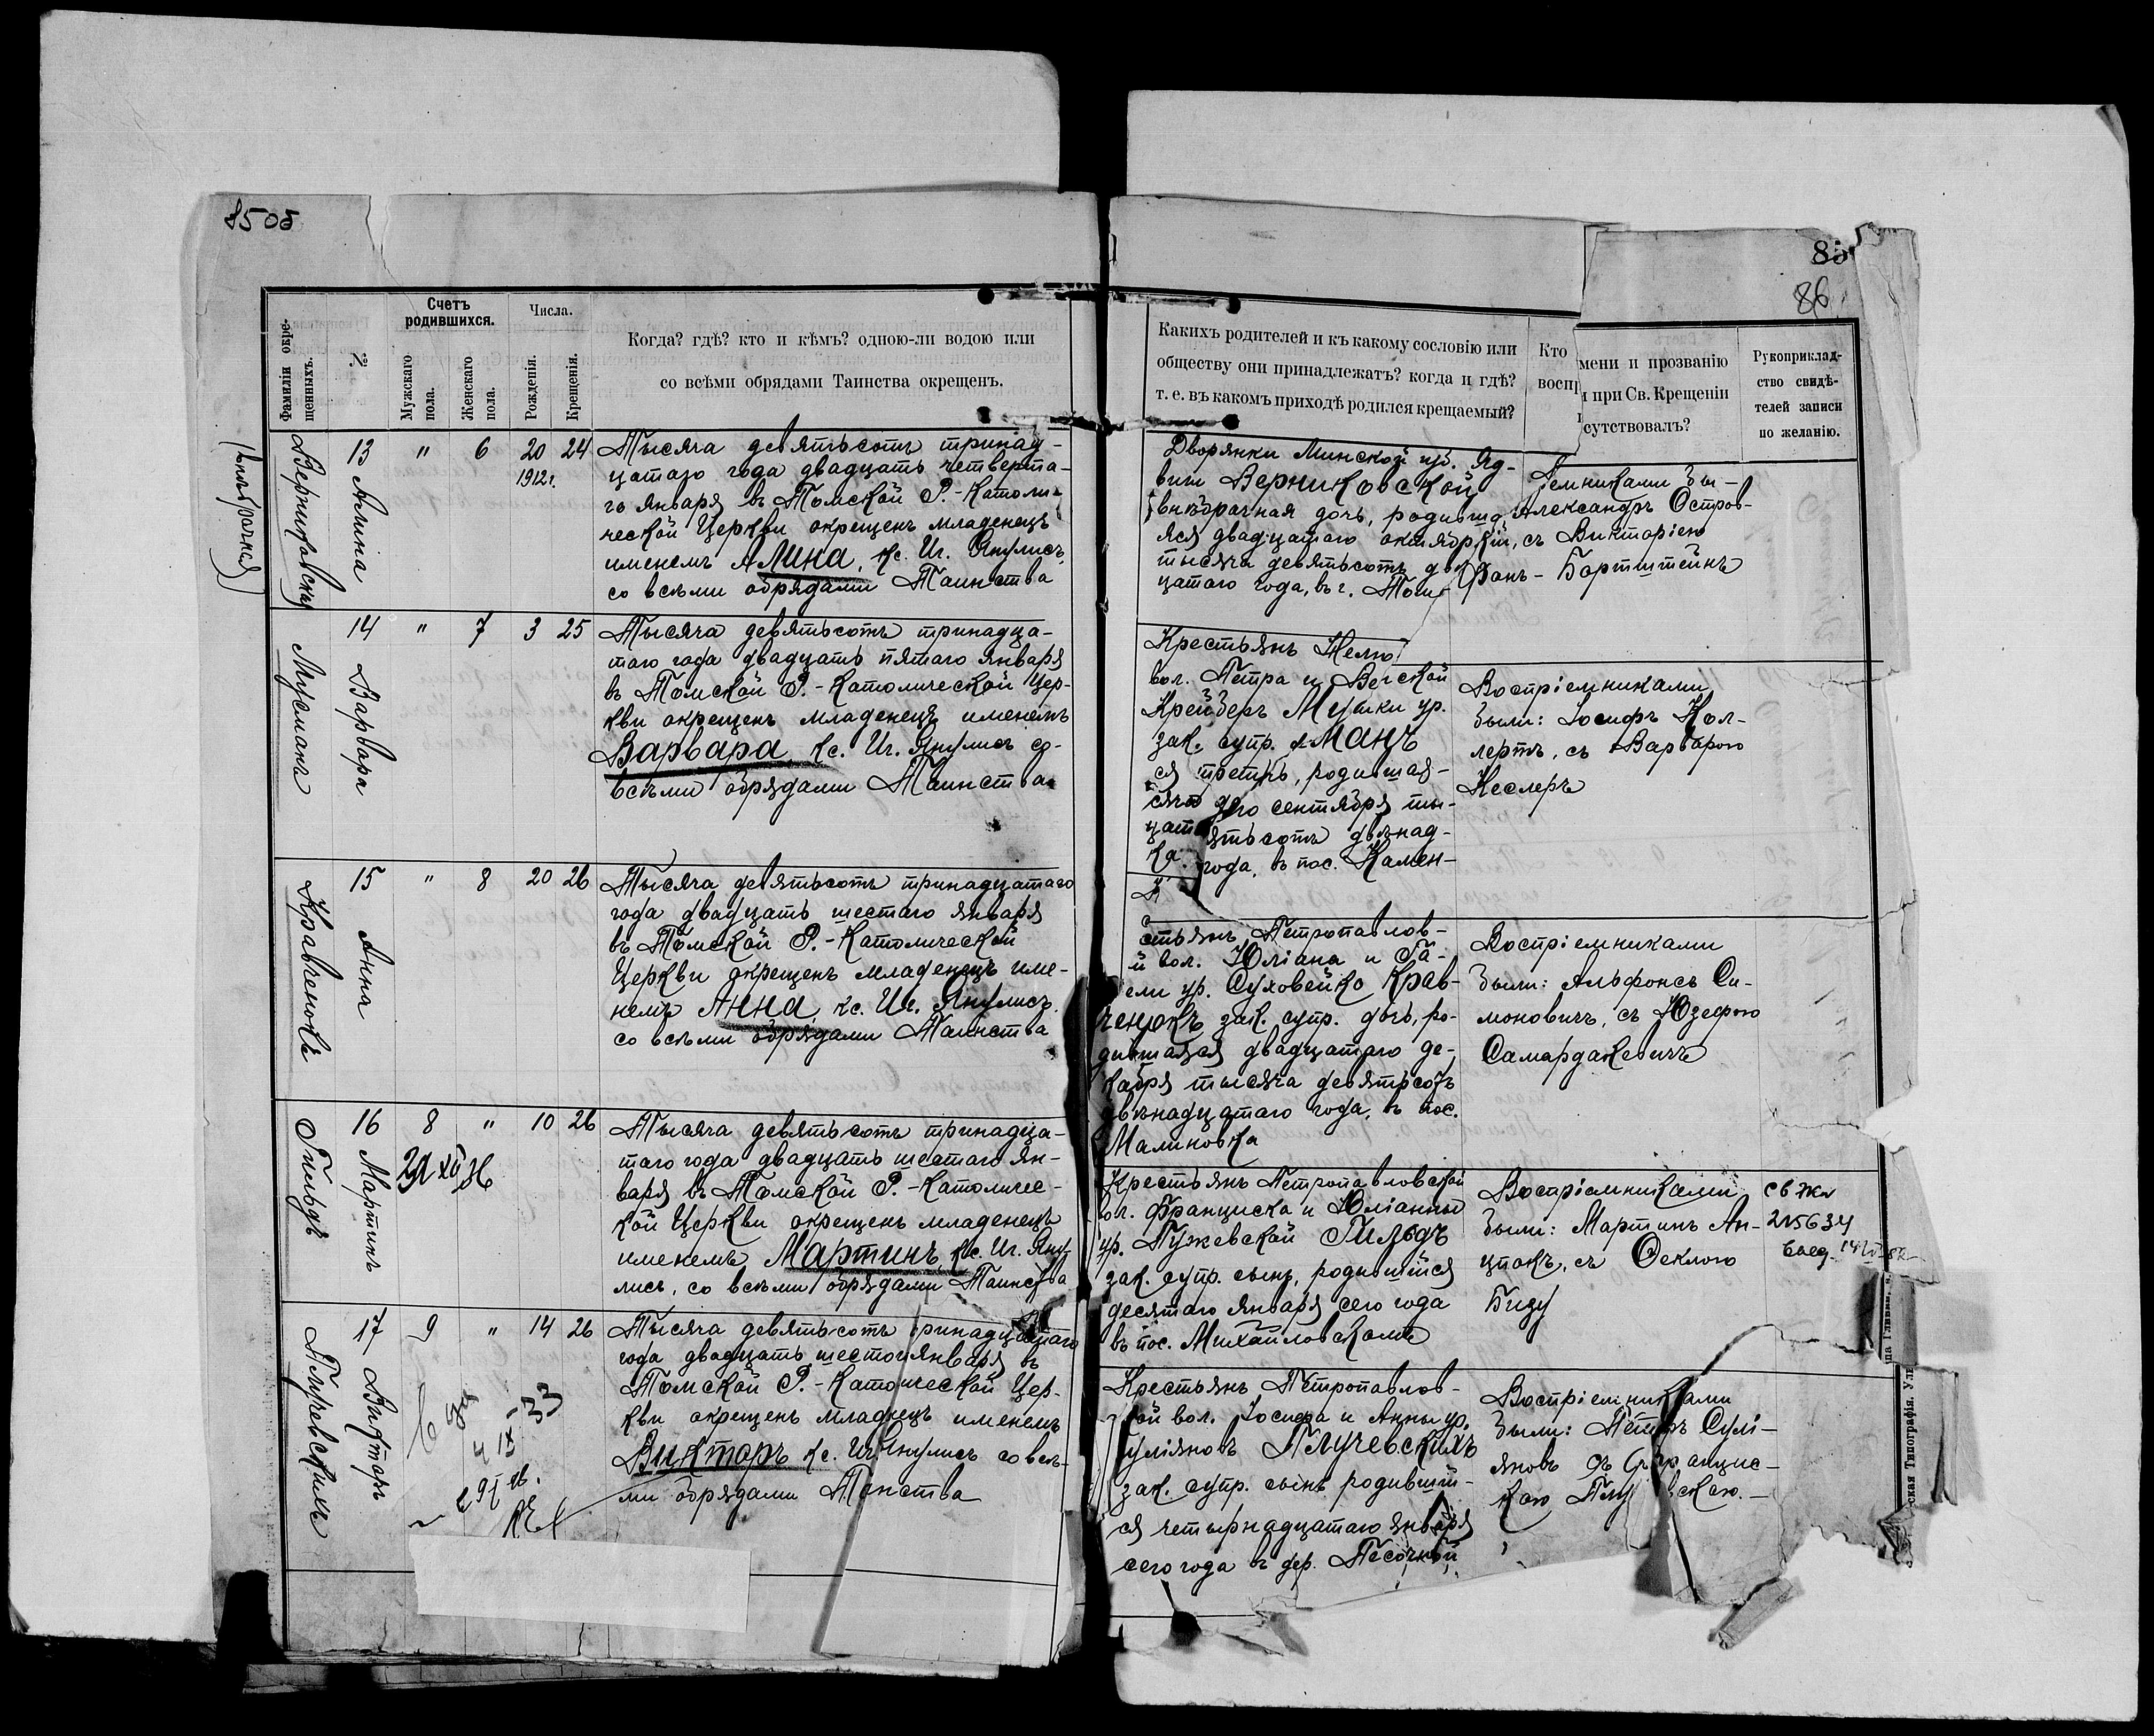 85об
85
86
Фамиліи окре-
щенныхъ.
№
Счетъ
родившихся.
Мужскаго
пола.
Женскаго
пола.
Числа.
Рожденія.
Крещенія.
Когда? гдѣ? кто и кѣмъ? одною-ли водою или
со всѣми обрядами Таинства окрещенъ.
Какихъ родителей и къ какому сословію или
обществу они принадлежатъ? когда и гдѣ?
т. е. въ какомъ приходѣ родился крещаемый?
Кто
воспр
мени и прозванію
и при Св. Крещеніи
сутствовалъ?
Рукоприклад-
ство свидѣ-
телей записи
по желанію.
(внѣбрачная)
Верниковская
13 Алина
" 6 20 24
1912 г.
Тысяча девятьсотъ тринад-
цатаго года двадцать четверта-
го января въ Томской Р.-Католи-
ческой Церкви окрещенъ младенецъ
именемъ Алина, кс. Иг. Янулисъ,
со всѣми обрядами Таинства
Дворянки Минской губ. Яд-
виги Верниковской
внѣбрачная дочь, родивша-
яся двадцатаго октября
тысяча девятьсотъ дв
цатаго года, въ г. Том
емниками бы-
Александръ Остров-
кій, съ Викторіею
Фонъ-Бортштейнъ
Мусманъ
14 Варвара
" 7 3 25
Тысяча девятьсотъ тринадца-
таго года двадцать пятаго января
въ Томской Р.-Католической Цер-
кви окрещенъ младенецъ именемъ
Варвара, кс. Иг. Янулисъ со
всѣми обрядами Таинства
Крестьянъ Нелю
вол. Петра и
Крейдеръ Му
зак. супр. манъ
ся третья, родившая-
го сентября ты-
сяча ятьсотъ двѣнад-
цат года, въ пос. Камен-
ка
Воспріемниками
были: Іосифъ Кол-
лертъ, съ Варварою
Кеслеръ
Кравченокъ
15 Анна
" 8 20 26
Тысяча девятьсотъ тринадцатаго
года двадцать шестаго января
въ Томской Р.-Католической
Церкви окрещенъ младенецъ име-
немъ Анна, кс. Иг. Янулисъ,
со всѣми обрядами Таинства
стьянъ Петропавлов-
й вол. Юліана и Га-
ели ур. Суховейко Крав-
ченокъ зак. супр. дочь, ро-
дившаяся двадцатаго де-
кабря тысяча девятьсотъ
двѣнадцатаго года, въ пос.
Малиновка
Воспріемниками
были: Альфонсъ Си-
моновичъ, съ Юзефою
Самардакевичъ
Гильдъ
16 Мартинъ
8 " 10 26
Тысяча девятьсотъ тринадца-
таго года двадцать шестаго ян-
варя въ Томской Р.-Католичес-
кой Церкви окрещенъ младенецъ
именемъ Мартинъ, кс. Иг. Яну-
лисъ, со всѣми обрядами Таинства
Крестьянъ Петропавловской
вол. Франциска и Юліанны
ур. Пужевской Гильдъ
зак. супр. сынъ, родившійся
десятаго января сего года
въ пос. Михайловскомъ
Воспріемниками
были: Мартинъ Ан-
цпакъ, съ Феклою
Бизу
215634
Плучевскихъ
17 Викторъ
9 " 14 26
4 IX-33
Тысяча девятьсотъ тринадцатаго
года двадцать шестого января въ
Томской Р.-Католической Цер-
кви окрещенъ младенецъ именемъ
Викторъ кс. Иг. Янулисъ со всѣ-
ми обрядами Таинства
Крестьянъ Петропавлов-
кой вол. Іосифа и Анны ур.
Суліяновъ Плучевскихъ
зак. супр. сынъ родивший-
ся четырнадцатаго января
сего года въ дер. Песочной
Воспріемниками
были: Петръ Сулі-
яновъ съ Францис-
кою Плу вскою.